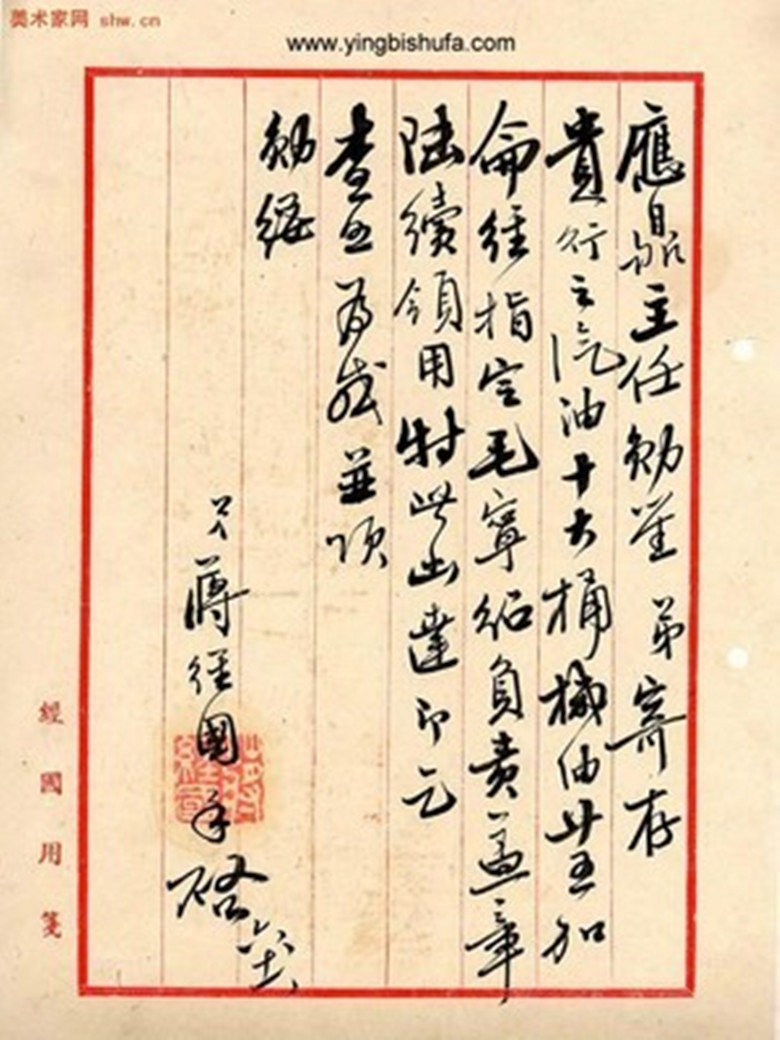 美术家网 shw.cn
www.yingbishufa.com
應鼎主任勋鉴 弟寄存
貴行之汽油十六桶機油廿五加
侖經指定毛寧紹負責蓋章
陸續領用特此函達即乞
查照為感並頌
勋綏
弟蔣經國手啓
經國用箋